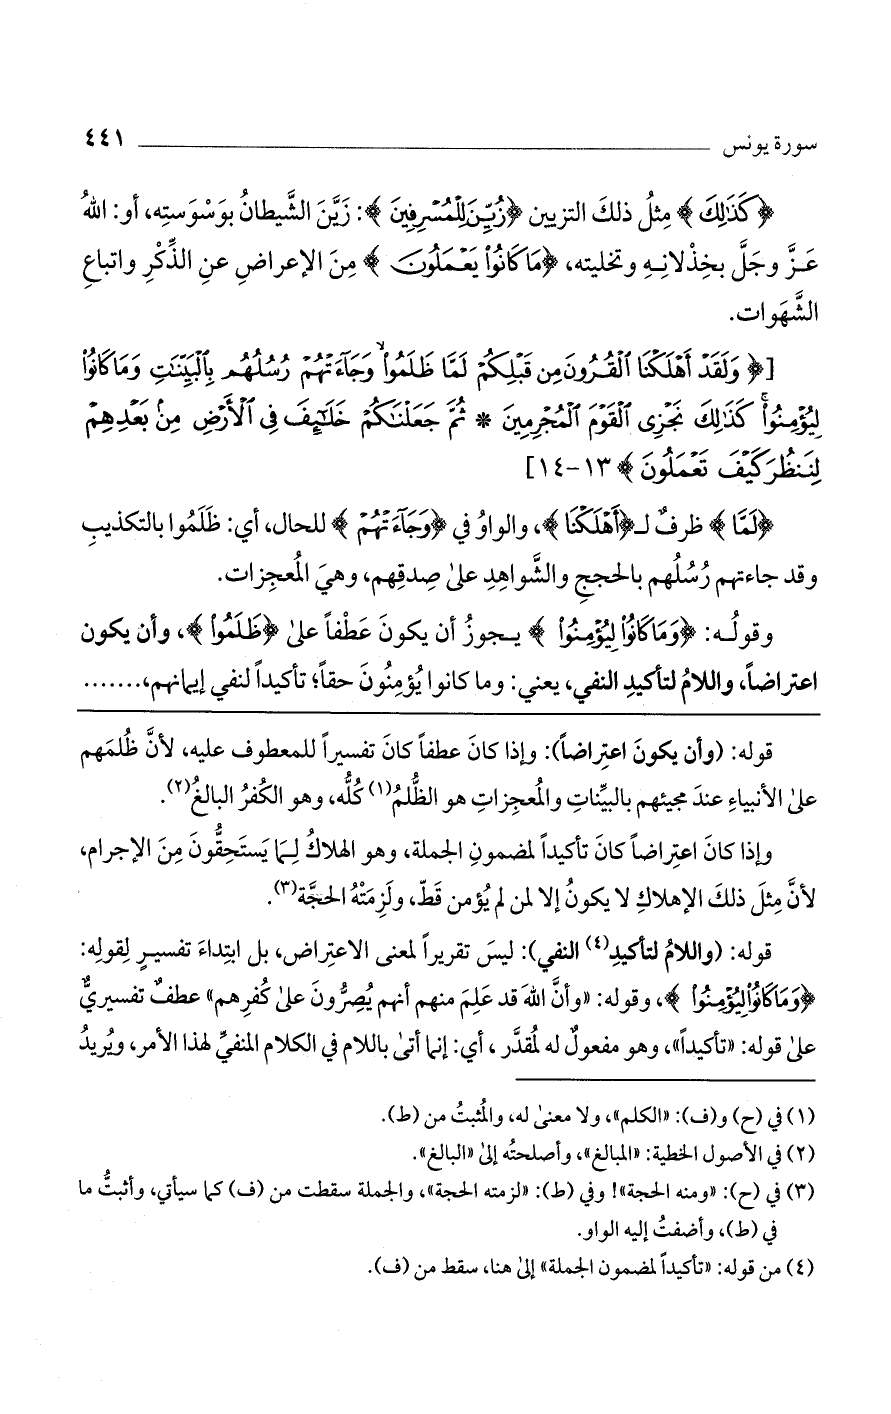 سورة يونس ٤٤١
﴿كَذَٰلِكَ﴾ مِثلُ ذلكَ التزيين ﴿زُيِّنَ لِلْمُسْرِفِينَ﴾: زَيَّنَ الشَّيطانُ بوَسْوَستِه، أو: اللهُ
عَزَّ وجَلَّ بخِذْلانِهِ وتخليته، ﴿مَا كَانُوا۟ يَعْمَلُونَ﴾ مِنَ الإعراضِ عنِ الذِّكْرِ واتباعِ
الشَّهَوات.
[﴿وَلَقَدْ أَهْلَكْنَا ٱلْقُرُونَ مِن قَبْلِكُمْ لَمَّا ظَلَمُوا۟ ۙ وَجَآءَتْهُمْ رُسُلُهُم بِٱلْبَيِّنَٰتِ وَمَا كَانُوا۟
لِيُؤْمِنُوا۟ ۚ كَذَٰلِكَ نَجْزِى ٱلْقَوْمَ ٱلْمُجْرِمِينَ * ثُمَّ جَعَلْنَٰكُمْ خَلَٰٓئِفَ فِى ٱلْأَرْضِ مِنۢ بَعْدِهِمْ
لِنَنظُرَ كَيْفَ تَعْمَلُونَ﴾ ١٣-١٤]
﴿لَمَّا﴾ ظرفٌ لـ﴿أَهْلَكْنَا﴾، والواوُ في ﴿وَجَآءَتْهُمْ﴾ للحال، أي: ظَلَمُوا بالتكذيبِ
وقد جاءتهم رُسُلُهم بالحججِ والشَّواهِدِ على صِدقِهم، وهيَ المُعجِزات.
وقولُـه: ﴿وَمَا كَانُوا۟ لِيُؤْمِنُوا۟﴾ يـجوزُ أن يكونَ عَطْفاً على ﴿ظَلَمُوا۟﴾، وأن يكون
اعتراضاً، واللامُ لتأكيدِ النفي، يعني: وما كانوا يُؤمِنُونَ حقاً؛ تأكيداً لنفي إيمانهم،.......
قوله: (وأن يكونَ اعتِراضاً): وإذا كانَ عطفاً كانَ تفسيراً للمعطوف عليه، لأنَّ ظُلمَهم
على الأنبياءِ عندَ مجيئهم بالبيِّناتِ والمُعجِزاتِ هو الظُّلمُ(١) كُلُّه، وهو الكُفرُ البالغُ(٢).
وإذا كانَ اعتِراضاً كانَ تأكيداً لمضمونِ الجملة، وهو الهلاكُ لِـمَا يَستَحِقُّونَ مِنَ الإجرام،
لأنَّ مِثلَ ذلكَ الإهلاكِ لا يكونُ إلا لمن لم يُؤمن قَطّ، ولَزِمَتْهُ الحجَّة(٣).
قوله: (واللامُ لتأكيدِ(٤) النفي): ليسَ تقريراً لمعنى الاعتِراض، بل ابتِداءَ تفسيرٍ لِقولِه:
﴿وَمَا كَانُوا۟ لِيُؤْمِنُوا۟﴾، وقوله: «وأنَّ اللهَ قد عَلِمَ منهم أنهم يُصِرُّونَ على كُفرِهم» عطفٌ تفسيريٌّ
على قوله: «تأكيداً»، وهو مفعولٌ له لمُقدَّر، أي: إنما أتى باللام في الكلام المنفيِّ لهذا الأمر، ويُريدُ
(١) في (ح) و(ف): «الكلم»، ولا معنى له، والمُثبتُ من (ط).
(٢) في الأصول الخطية: «المبالغ»، وأصلحتُه إلى «البالغ».
(٣) في (ح): «ومنه الحجة»! وفي (ط): «لزمته الحجة»، والجملة سقطت من (ف) كما سيأتي، وأثبتُّ ما
في (ط)، وأضفتُ إليه الواو.
(٤) من قوله: «تأكيداً لمضمون الجملة» إلى هنا، سقط من (ف).